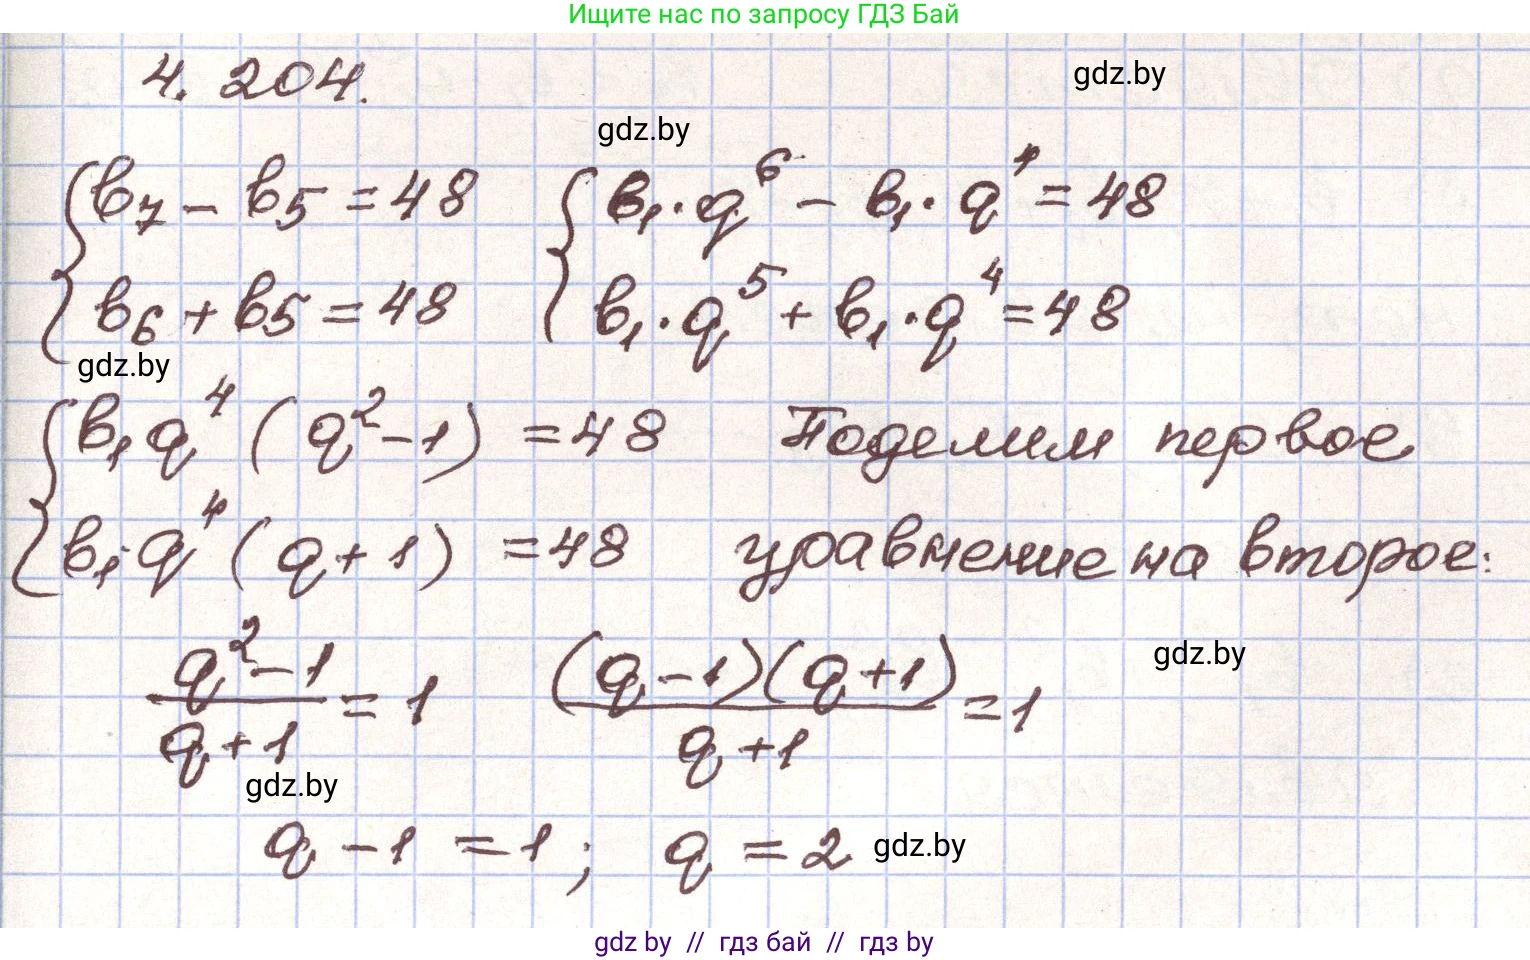 Ищите нас по запросу ГДЗ Бай
4. 204.
gdz.by
gdz.by
{ b₇ - b₅ = 48 { b₁·q⁶ - b₁·q⁴ = 48
b₆ + b₅ = 48 b₁·q⁵ + b₁·q⁴ = 48
gdz.by
{ b₁q⁴ (q² - 1) = 48 Поделим первое
b₁·q⁴ (q + 1) = 48 уравнение на второе:
gdz.by
(q² - 1)/(q + 1) = 1 ((q - 1)(q + 1))/(q + 1) = 1
gdz.by
q - 1 = 1; q = 2
gdz.by
gdz by // гдз бай // гдз by